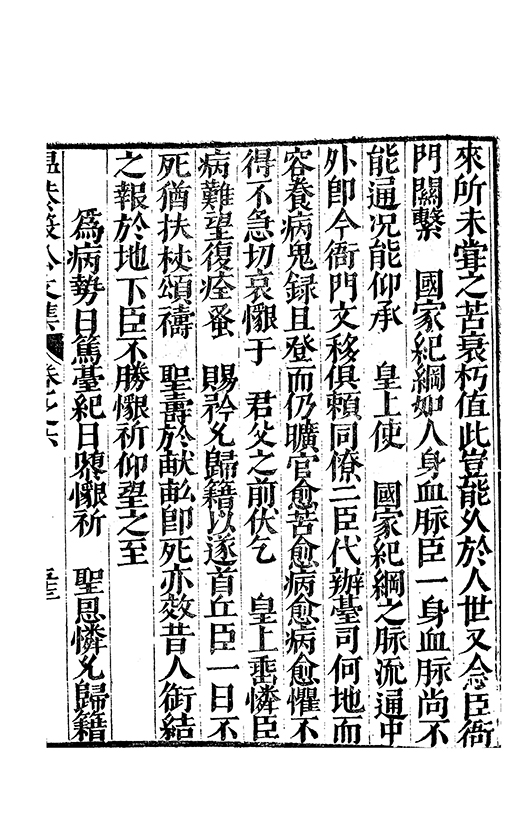 來所未甞之苦衰朽值此豈能乆於人世又念臣衙
門關繫　國家紀綱如人身血脉臣一身血脉尚不
能通况能仰承　皇上使　國家紀綱之脉流通中
外卽今衙門文移俱賴同僚二臣代辦臺司何地而
容養病鬼録且登而仍曠官愈苦愈病愈病愈懼不
得不急切哀懇于　君父之前伏乞　皇上垂憐臣
病難望復痊蚤　賜矜允歸籍以遂首丘臣一日不
死猶扶杖頌禱　聖壽於畎畝卽死亦效昔人銜結
之報於地下臣不勝懇祈仰望之至
爲病勢日篤臺紀日隳懇祈　聖恩憐允歸籍
文集　卷之六